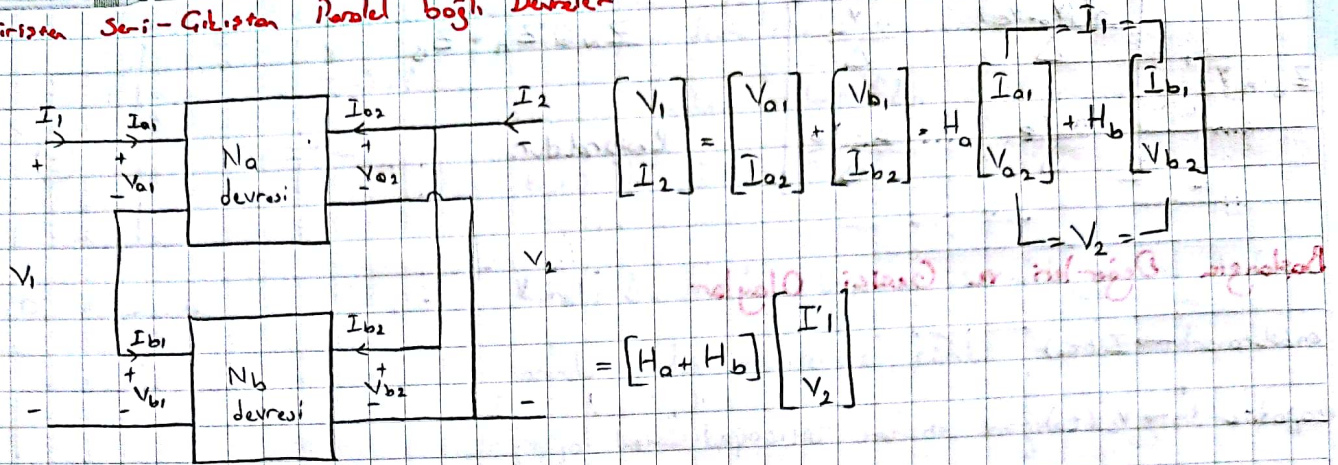 Seri-Çıkıştan Paralel bağlı Devreler
I1 Ia1 Na devresi Ia2 I2
+ + Va1 - + Va2 - -
V1 V2
Ib1 Nb devresi Ib2
+ Vb1 - + Vb2 -
- -
= I1 =
[V1 I2] = [Va1 Ia2] + [Vb1 Ib2] = Ha [Ia1 Va2] + Hb [Ib1 Vb2]
= V2 =
= [Ha + Hb] [I'1 V2]